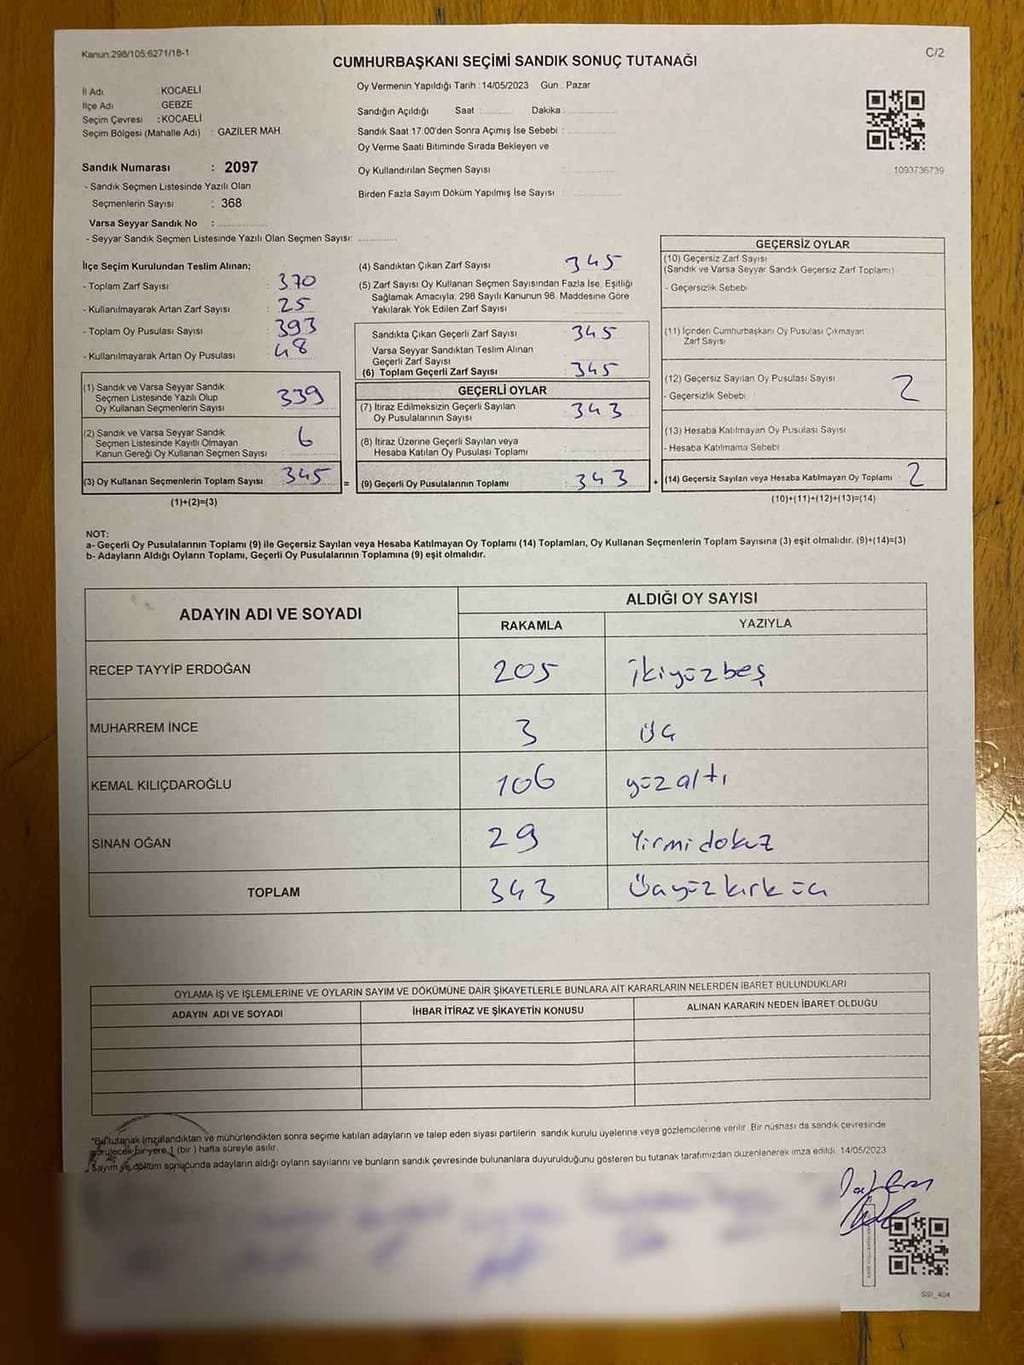 Kanun:298/105,6271/18-1
C/2
CUMHURBAŞKANI SEÇİMİ SANDIK SONUÇ TUTANAĞI
İl Adı : KOCAELİ
İlçe Adı : GEBZE
Seçim Çevresi : KOCAELİ
Seçim Bölgesi (Mahalle Adı) : GAZİLER MAH.
Sandık Numarası : 2097
- Sandık Seçmen Listesinde Yazılı Olan
Seçmenlerin Sayısı : 368
Varsa Seyyar Sandık No :
- Seyyar Sandık Seçmen Listesinde Yazılı Olan Seçmen Sayısı:
Oy Vermenin Yapıldığı Tarih : 14/05/2023 Gün : Pazar
Sandığın Açıldığı Saat Dakika
Sandık Saat 17:00'den Sonra Açımış İse Sebebi :
Oy Verme Saati Bitiminde Sırada Bekleyen ve
Oy Kullandırılan Seçmen Sayısı
Birden Fazla Sayım Döküm Yapılmış İse Sayısı
1093736739
İlçe Seçim Kurulundan Teslim Alınan;
- Toplam Zarf Sayısı : 370
- Kullanılmayarak Artan Zarf Sayısı : 25
- Toplam Oy Pusulası Sayısı : 393
- Kullanılmayarak Artan Oy Pusulası : 48
(1) Sandık ve Varsa Seyyar Sandık
Seçmen Listesinde Yazılı Olup
Oy Kullanan Seçmenlerin Sayısı 339
(2) Sandık ve Varsa Seyyar Sandık
Seçmen Listesinde Kayıtlı Olmayan
Kanun Gereği Oy Kullanan Seçmen Sayısı 6
(3) Oy Kullanan Seçmenlerin Toplam Sayısı : 345 =
(1)+(2)=(3)
(4) Sandıktan Çıkan Zarf Sayısı 345
(5) Zarf Sayısı Oy Kullanan Seçmen Sayısından Fazla İse, Eşitliği
Sağlamak Amacıyla, 298 Sayılı Kanunun 98. Maddesine Göre
Yakılarak Yok Edilen Zarf Sayısı
Sandıkta Çıkan Geçerli Zarf Sayısı 345
Varsa Seyyar Sandıktan Teslim Alınan
Geçerli Zarf Sayısı
(6) Toplam Geçerli Zarf Sayısı : 345
GEÇERLİ OYLAR
(7) İtiraz Edilmeksizin Geçerli Sayılan
Oy Pusulalarının Sayısı : 343
(8) İtiraz Üzerine Geçerli Sayılan veya
Hesaba Katılan Oy Pusulası Toplamı
(9) Geçerli Oy Pusulalarının Toplamı : 343 +
GEÇERSİZ OYLAR
(10) Geçersiz Zarf Sayısı
(Sandık ve Varsa Seyyar Sandık Geçersiz Zarf Toplamı)
- Geçersizlik Sebebi
(11) İçinden Cumhurbaşkanı Oy Pusulası Çıkmayan
Zarf Sayısı
(12) Geçersiz Sayılan Oy Pusulası Sayısı 2
- Geçersizlik Sebebi
(13) Hesaba Katılmayan Oy Pusulası Sayısı
- Hesaba Katılmama Sebebi
(14) Geçersiz Sayılan veya Hesaba Katılmayan Oy Toplamı 2
(10)+(11)+(12)+(13)=(14)
NOT:
a- Geçerli Oy Pusulalarının Toplamı (9) ile Geçersiz Sayılan veya Hesaba Katılmayan Oy Toplamı (14) Toplamları, Oy Kullanan Seçmenlerin Toplam Sayısına (3) eşit olmalıdır. (9)+(14)=(3)
b- Adayların Aldığı Oyların Toplamı, Geçerli Oy Pusulalarının Toplamına (9) eşit olmalıdır.
ADAYIN ADI VE SOYADI
ALDIĞI OY SAYISI
RAKAMLA YAZIYLA
RECEP TAYYİP ERDOĞAN 205 ikiyüzbeş
MUHARREM İNCE 3 üç
KEMAL KILIÇDAROĞLU 106 yüzaltı
SİNAN OĞAN 29 Yirmidokuz
TOPLAM 343 Üçyüzkırküç
OYLAMA İŞ VE İŞLEMLERİNE VE OYLARIN SAYIM VE DÖKÜMÜNE DAİR ŞİKAYETLERLE BUNLARA AİT KARARLARIN NELERDEN İBARET BULUNDUKLARI
ADAYIN ADI VE SOYADI İHBAR İTİRAZ VE ŞİKAYETİN KONUSU ALINAN KARARIN NEDEN İBARET OLDUĞU
*Bu tutanak imzalandıktan ve mühürlendikten sonra seçime katılan adayların ve talep eden siyasi partilerin sandık kurulu üyelerine veya gözlemcilerine verilir. Bir nüshası da sandık çevresinde
görülecek bir yere 1 (bir) hafta süreyle asılır.
Sayım ve döküm sonucunda adayların aldığı oyların sayılarını ve bunların sandık çevresinde bulunanlara duyurulduğunu gösteren bu tutanak tarafımızdan düzenlenerek imza edildi. 14/05/2023
SSI_404